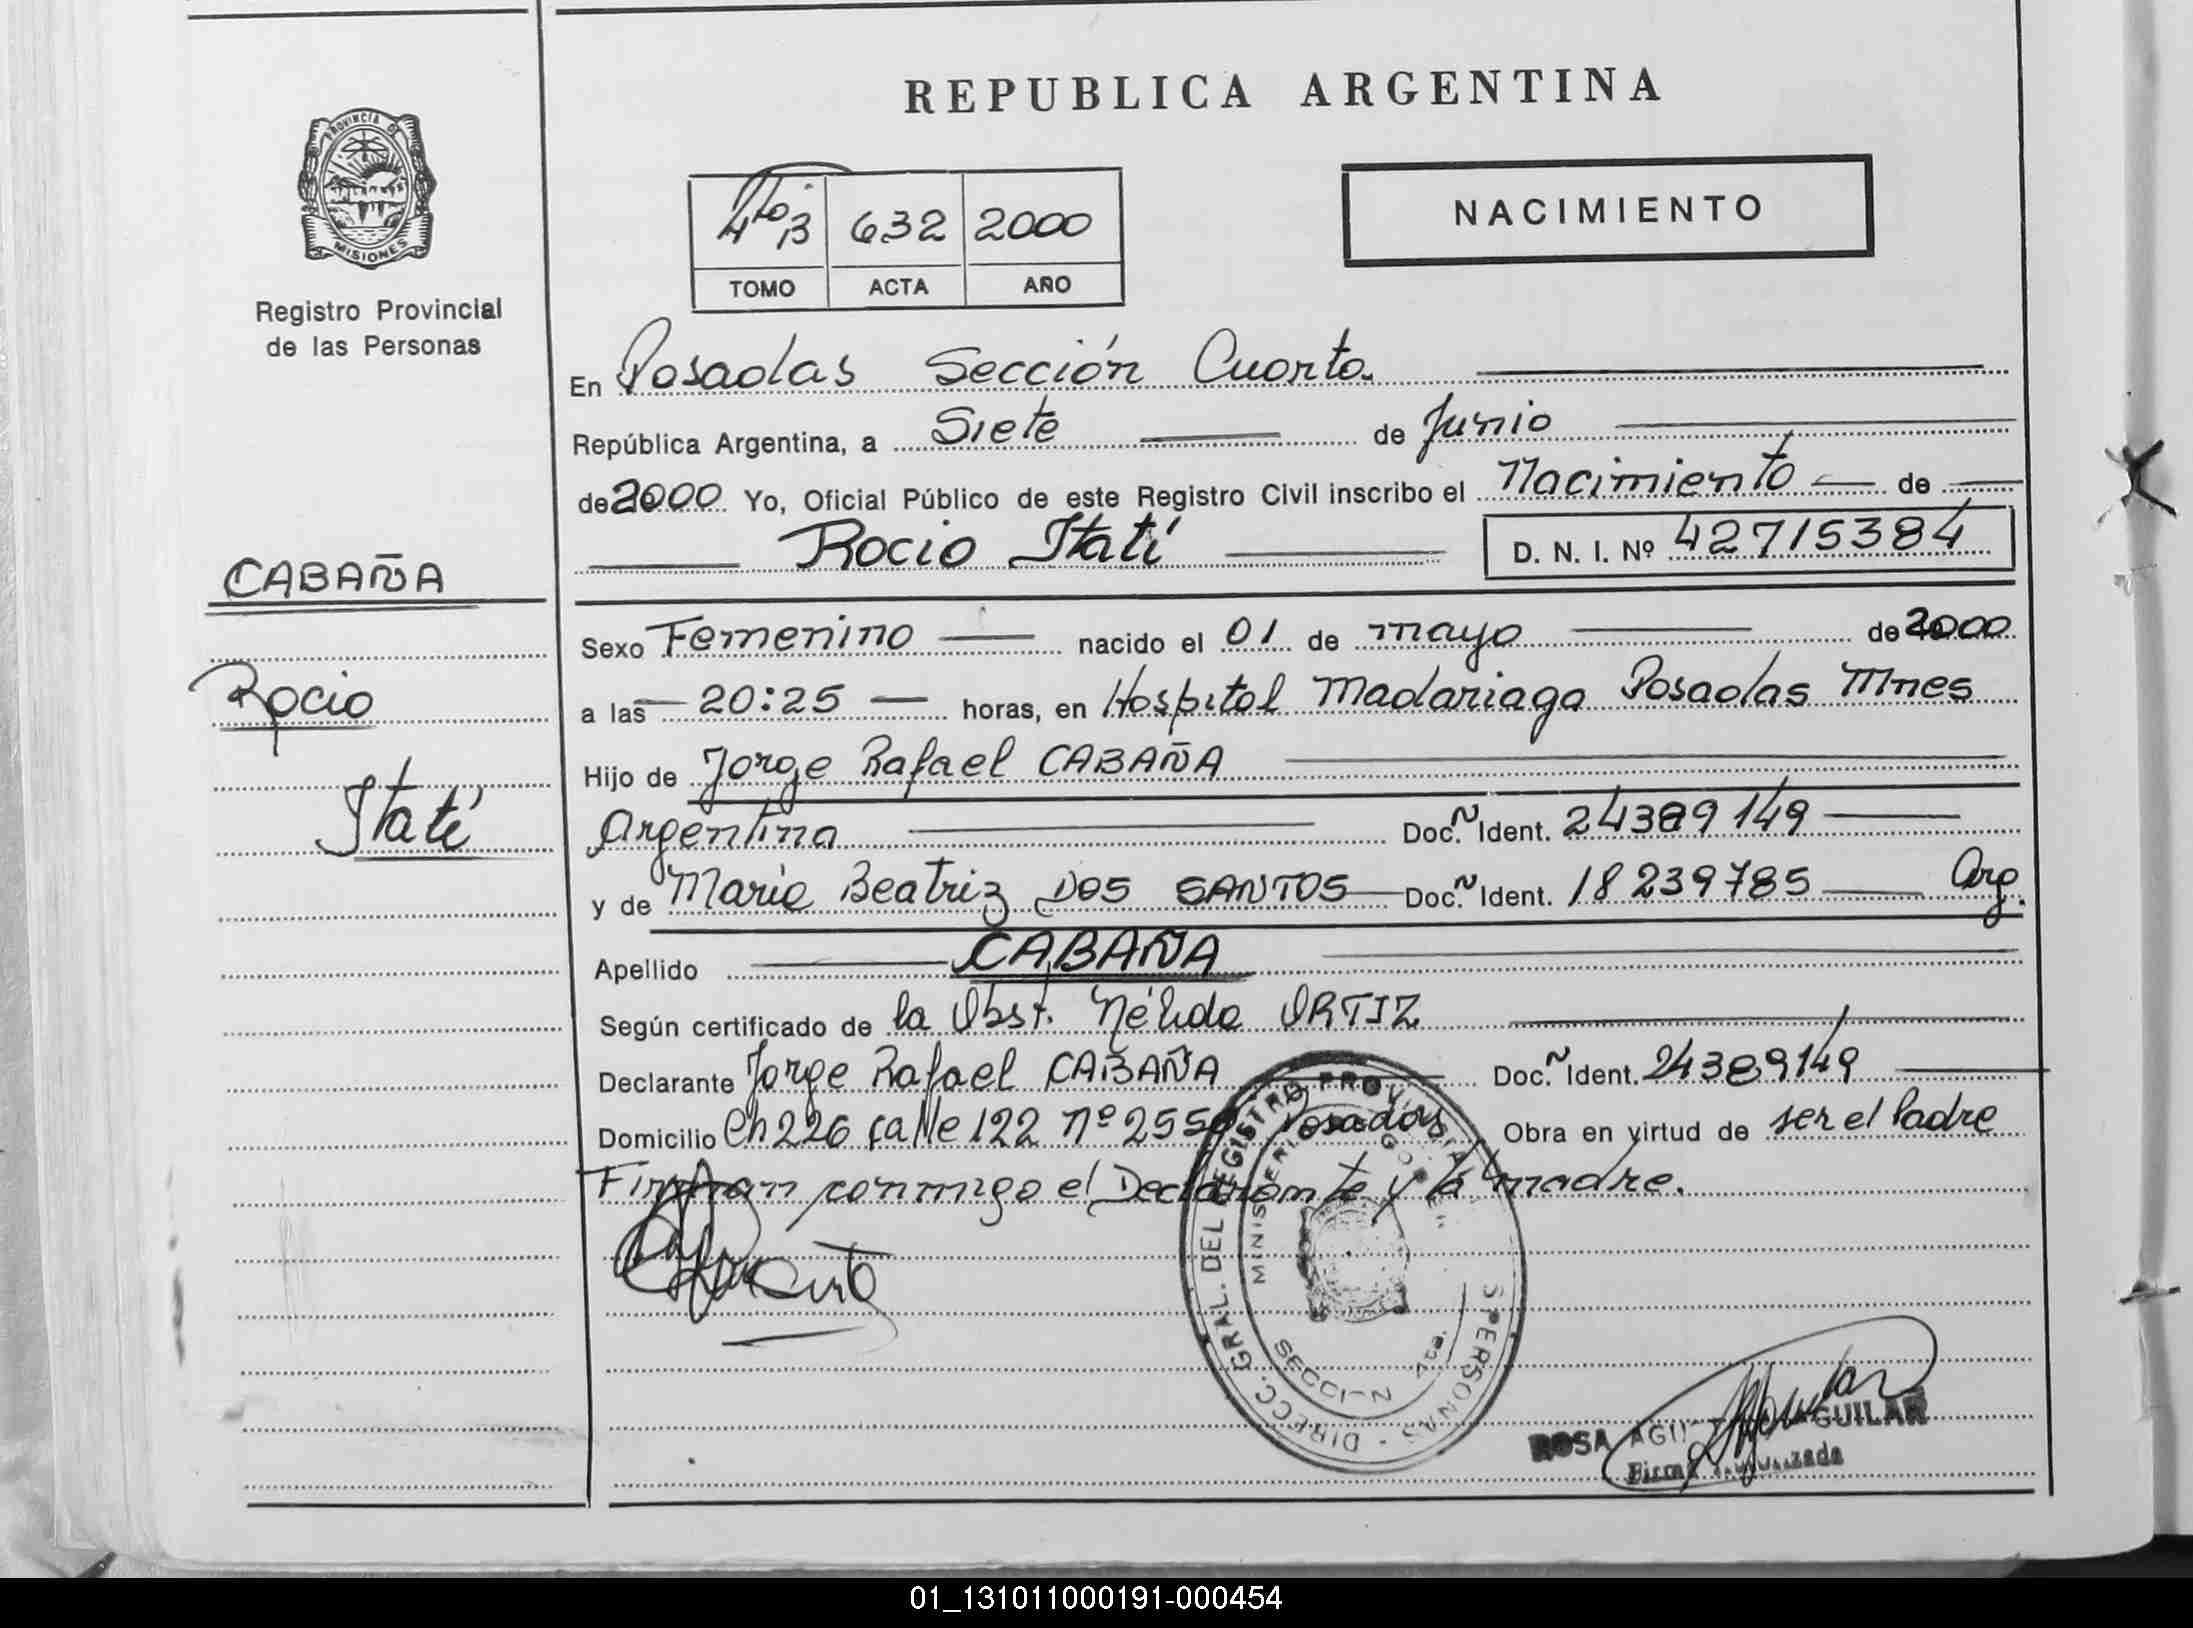 REPUBLICA ARGENTINA
PROVINCIA DE
MISIONES
Registro Provincial
de las Personas
632 2000
TOMO ACTA AÑO
NACIMIENTO
En Posadas Sección Cuarta.
República Argentina, a Siete de Junio
de 2000 Yo, Oficial Público de este Registro Civil inscribo el Nacimiento de
Rocio Itatí D. N. I. Nº 42715384
CABAÑA
Rocio
Itatí
Sexo Femenino nacido el 01 de mayo de 2000
a las 20:25 horas, en Hospital Madariaga Posadas Mnes
Hijo de Jorge Rafael CABAÑA
Argentina Doc. Ident. 24389149
y de María Beatriz DOS SANTOS Doc. Ident. 18239785 Arg.
Apellido CABAÑA
Según certificado de la Obst. Nélida ORTIZ
Declarante Jorge Rafael CABAÑA Doc. Ident. 24389149
Domicilio Ch 226 calle 122 nº 2550 Posadas Obra en virtud de ser el Padre
Firman conmigo el Declarante y la madre.
DIRECC. GRAL. DEL REGISTRO PROVINCIAL PERSONAS
SECCION 4ta.
ROSA AGUILAR
01_131011000191-000454